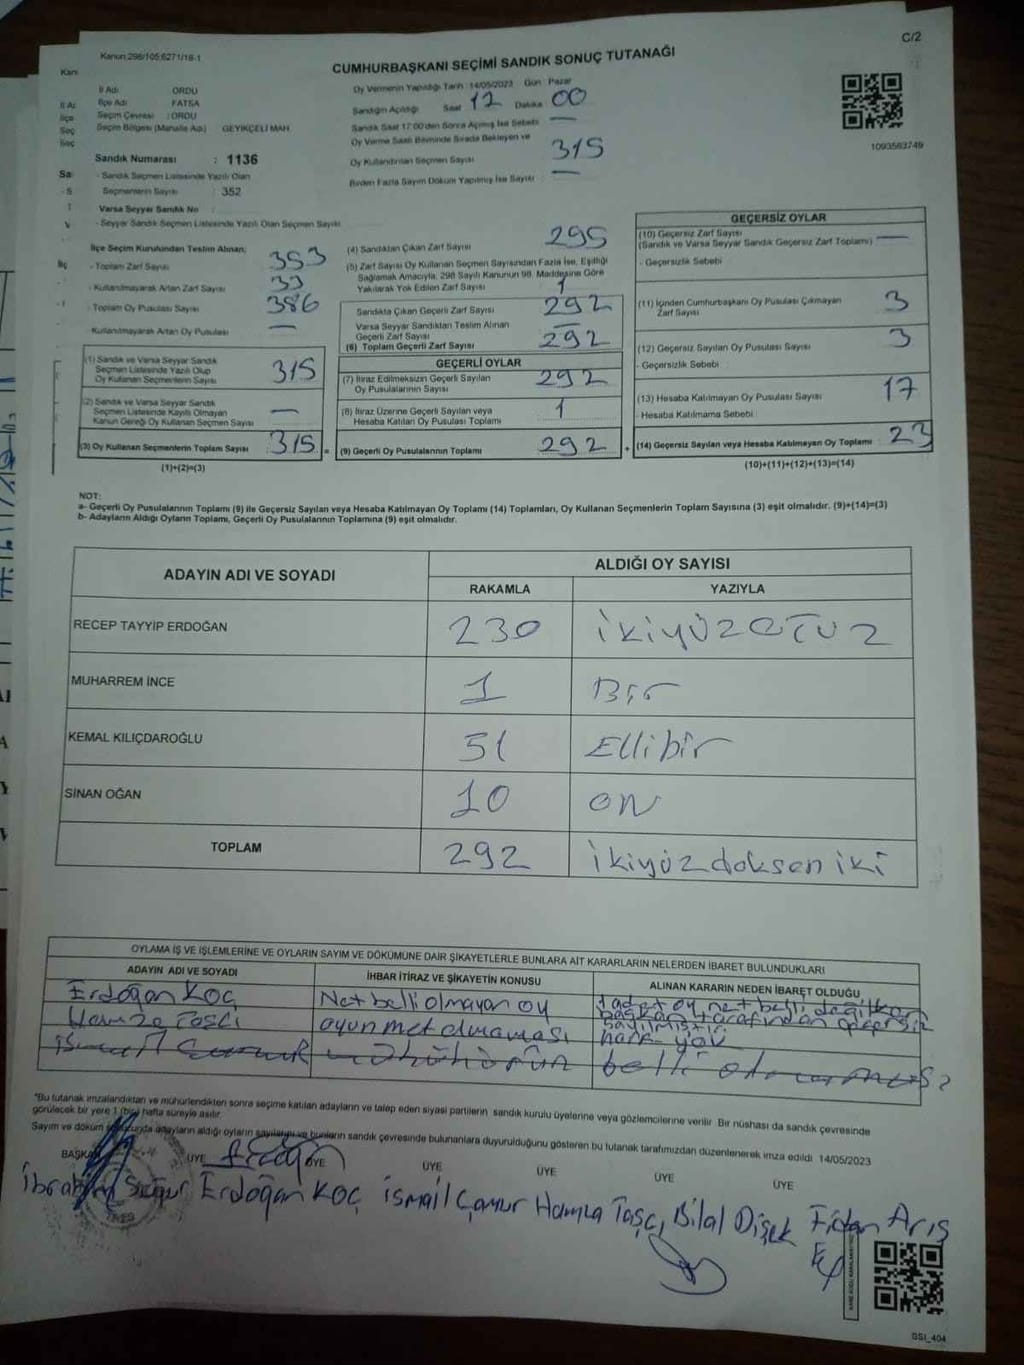 C/2
Kanun:298/105;6271/18-1
CUMHURBAŞKANI SEÇİMİ SANDIK SONUÇ TUTANAĞI
İl Adı ORDU
İlçe Adı FATSA
Seçim Çevresi : ORDU
Seçim Bölgesi (Mahalle Adı) GEYİKÇELİ MAH.
Sandık Numarası : 1136
- Sandık Seçmen Listesinde Yazılı Olan
Seçmenlerin Sayısı : 352
Varsa Seyyar Sandık No
- Seyyar Sandık Seçmen Listesinde Yazılı Olan Seçmen Sayısı
Oy Vermenin Yapıldığı Tarih :14/05/2023 Gün : Pazar
Sandığın Açıldığı Saat 12 Dakika 00
Sandık Saat 17:00'den Sonra Açılmış İse Sebebi —
Oy Verme Saati Bitiminde Sırada Bekleyen ve
Oy Kullandırılan Seçmen Sayısı 315
Birden Fazla Sayım Döküm Yapılmış İse Sayısı —
1093563749
İlçe Seçim Kurulundan Teslim Alınan;
- Toplam Zarf Sayısı 353
- Kullanılmayarak Artan Zarf Sayısı 33
- Toplam Oy Pusulası Sayısı 386
Kullanılmayarak Artan Oy Pusulası —
(1) Sandık ve Varsa Seyyar Sandık
Seçmen Listesinde Yazılı Olup
Oy Kullanan Seçmenlerin Sayısı 315
(2) Sandık ve Varsa Seyyar Sandık
Seçmen Listesinde Kayıtlı Olmayan
Kanun Gereği Oy Kullanan Seçmen Sayısı —
(3) Oy Kullanan Seçmenlerin Toplam Sayısı 315
(1)+(2)=(3)
(4) Sandıktan Çıkan Zarf Sayısı 295
(5) Zarf Sayısı Oy Kullanan Seçmen Sayısından Fazla İse, Eşitliği
Sağlamak Amacıyla, 298 Sayılı Kanunun 98. Maddesine Göre
Yakılarak Yok Edilen Zarf Sayısı 1
Sandıkta Çıkan Geçerli Zarf Sayısı 292
Varsa Seyyar Sandıktan Teslim Alınan
Geçerli Zarf Sayısı —
(6) Toplam Geçerli Zarf Sayısı 292
GEÇERLİ OYLAR
(7) İtiraz Edilmeksizin Geçerli Sayılan
Oy Pusulalarının Sayısı 292
(8) İtiraz Üzerine Geçerli Sayılan veya
Hesaba Katılan Oy Pusulası Toplamı 1
= (9) Geçerli Oy Pusulalarının Toplamı 292
GEÇERSİZ OYLAR
(10) Geçersiz Zarf Sayısı —
(Sandık ve Varsa Seyyar Sandık Geçersiz Zarf Toplamı)
- Geçersizlik Sebebi
(11) İçinden Cumhurbaşkanı Oy Pusulası Çıkmayan
Zarf Sayısı 3
(12) Geçersiz Sayılan Oy Pusulası Sayısı 3
- Geçersizlik Sebebi :
(13) Hesaba Katılmayan Oy Sayısı 17
- Hesaba Katılmama Sebebi
+ (14) Geçersiz Sayılan veya Hesaba Katılmayan Oy Toplamı 23
(10)+(11)+(12)+(13)=(14)
NOT:
a- Geçerli Oy Pusulalarının Toplamı (9) ile Geçersiz Sayılan veya Hesaba Katılmayan Oy Toplamı (14) Toplamları, Oy Kullanan Seçmenlerin Toplam Sayısına (3) eşit olmalıdır. (9)+(14)=(3)
b- Adayların Aldığı Oyların Toplamı, Geçerli Oy Pusulalarının Toplamına (9) eşit olmalıdır.
ADAYIN ADI VE SOYADI ALDIĞI OY SAYISI
RAKAMLA YAZIYLA
RECEP TAYYİP ERDOĞAN 230 ikiyüzotuz
MUHARREM İNCE 1 Bir
KEMAL KILIÇDAROĞLU 51 Ellibir
SİNAN OĞAN 10 ON
TOPLAM 292 ikiyüzdoksen iki
OYLAMA İŞ VE İŞLEMLERİNE VE OYLARIN SAYIM VE DÖKÜMÜNE DAİR ŞİKAYETLERLE BUNLARA AİT KARARLARIN NELERDEN İBARET BULUNDUKLARI
ADAYIN ADI VE SOYADI İHBAR İTİRAZ VE ŞİKAYETİN KONUSU ALINAN KARARIN NEDEN İBARET OLDUĞU
Erdoğan KOÇ Net belli olmayan oy 1 adet oy net belli değilken
başkan tarafından geçersiz
sayılmıştır
Hamza Taşcı oyun net olmaması
*Bu tutanak imzalandıktan ve mühürlendikten sonra seçime katılan adayların ve talep eden siyasi partilerin sandık kurulu üyelerine veya gözlemcilerine verilir. Bir nüshası da sandık çevresinde
görülecek bir yere 1 (bir) hafta süreyle asılır.
Sayım ve döküm sonucunda adayların aldığı oyların sayılarını ve bunların sandık çevresinde bulunanlara duyurulduğunu gösteren bu tutanak tarafımızdan düzenlenerek imza edildi 14/05/2023
BAŞKAN ÜYE ÜYE ÜYE ÜYE ÜYE ÜYE
İbrahim Erdoğan KOÇ ismail Çamur Hamza Taşcı Bilal Dişek Fidan Arış
BSI_404